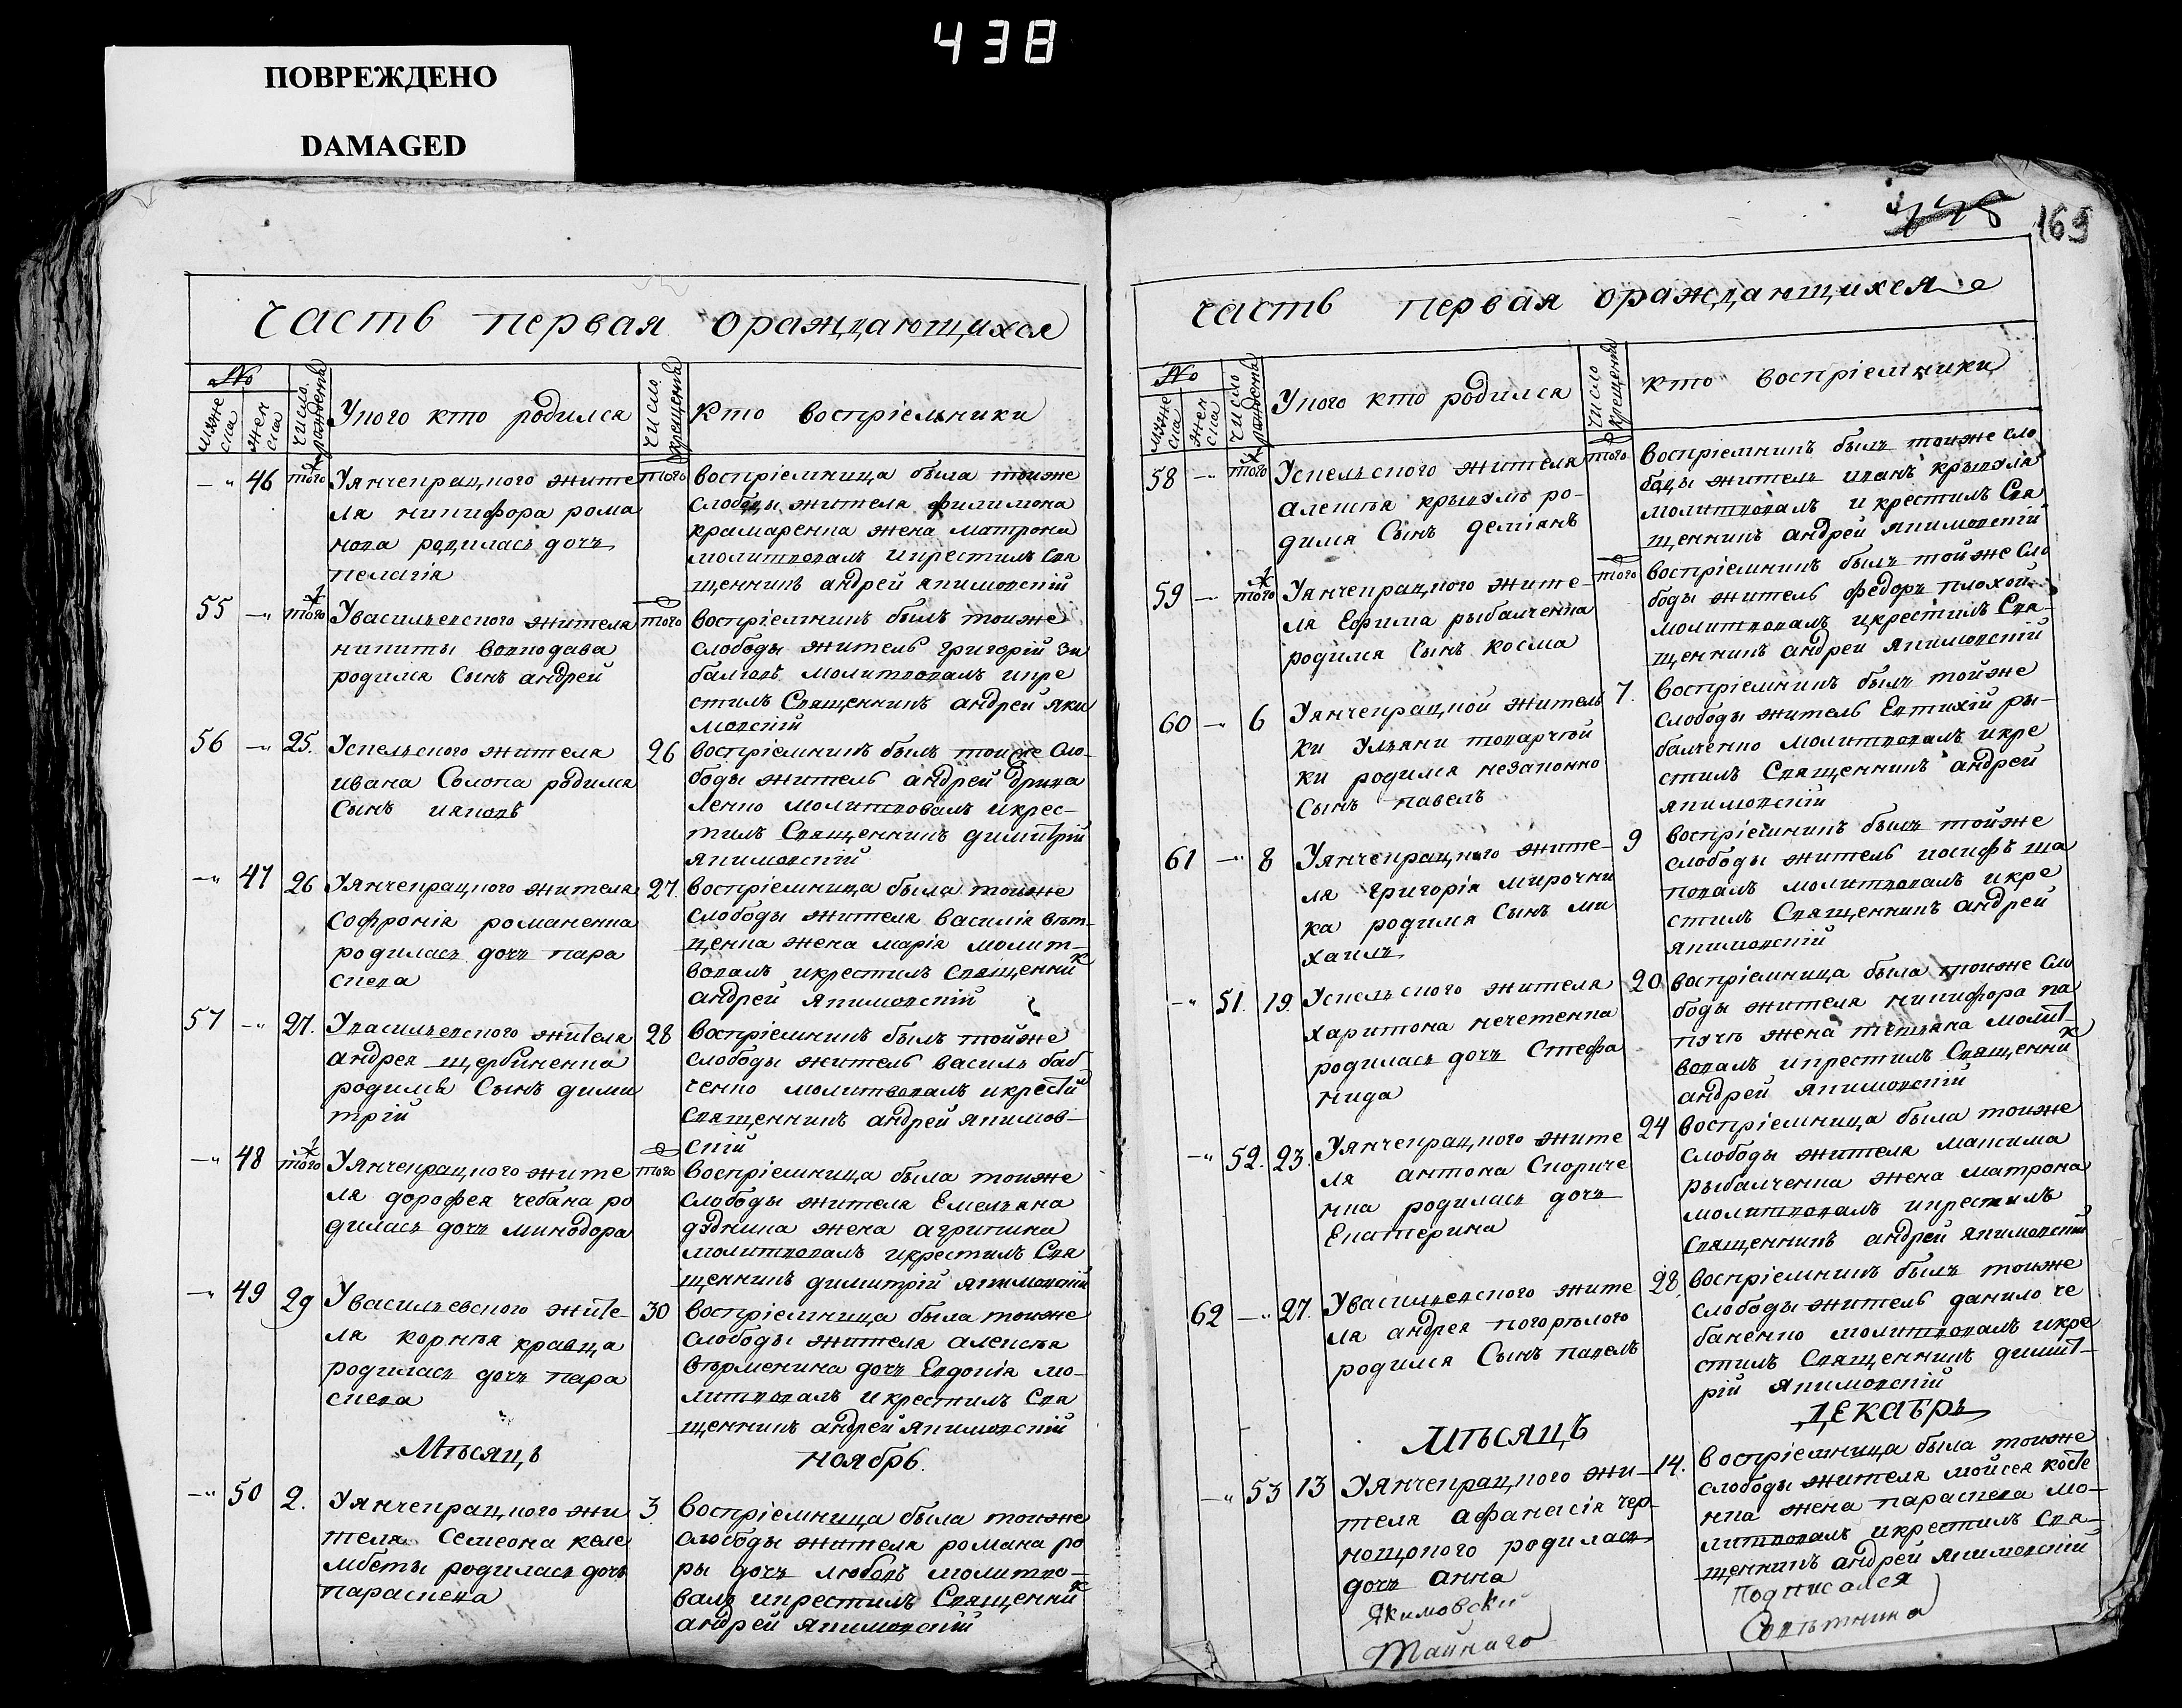 438
ПОВРЕЖДЕНО
DAMAGED
Часть первая ораждающихся
№
муже
ска
жен
ска
число
рожденья
Укого кто родился
число
крещенья
Кто воспріемники
—„ 46 того Уянчекрацкого жите
ля никифора рома
нова родилась дочь
пелагія
того воспріемница была тойже
слободы жителя филимона
крамаренка жена матрона
молитвовалъ икрестилъ Свя
щенникъ андрей якимовскій
55 —„ того Увасильевского жителя
никиты
родился Сынъ андрей
того воспріемникъ былъ тойже
слободы житель григорій
молитвовалъ икре
стилъ Священникъ андрей яки
мовскій
56 —„ 25. Успельского жителя
ивана Солопа родился
Сынъ ияковъ
26 воспріемникъ былъ тойже Сло-
боды житель андрей
ленко молитвовалъ икрес-
тилъ Священникъ димитрій
якимовскій
—„ 47 26 Уянчекрацкого жителя
Софронія романенка
родилась дочь пара
скева
27. воспріемница была тойже
слободы жителя василія
щенка жена марія молит-
вовалъ икрестилъ Священник
андрей якимовскій
57 —„ 27. Увасильевского жителя
андрея щербиненка
родился Сынъ дими
трій
28 воспріемникъ былъ тойже
слободы житель василь баб
ченко молитвовалъ икрестил
Священникъ андрей якимов-
скій
—„ 48 того Уянчекрацкого жите
ля дорофея чебана ро
дилась дочь минодора
того воспріемница была тойже
слободы жителя Емельяна
дядкина жена агрипина
молитвовалъ икрестилъ Свя
щенникъ димитрій якимовскій
—„ 49 29 Увасильевского жите-
ля корнѣя кравца
родилась дочь пара
скева
30 воспріемница была тойже
слободы жителя алексѣя
вѣрменина дочь Евдокія мо-
литвовалъ икрестилъ Свя
щенникъ андрей якимовскій
Мѣсяцъ ноябрь.
—„ 50 2. Уянчекрацкого жи
теля Семеона келе
мбеты родилась дочь
параскева
3. воспріемница была тойже
слободы жителя романа ро
ры дочь любовь молитво-
валъ икрестилъ Священник
андрей якимовскій
169
часть первая ораждающихся
№
муже
ска
жен
ска
число
рожденья
Укого кто родился
число
крещенья
кто воспріемники
58 —„ того Успельского жителя
алексѣя крывулѣ ро-
дился Сынъ деміянъ
того воспріемникъ былъ тойже сло
боды житель иванъ крывуля
молитвовалъ и крестилъ Свя
щенникъ андрей якимовскій
59 —„ того Уянчекрацкого жите-
ля Ефима рыбалченка
родился Сынъ косма
того воспріемникъ былъ тойже Сло
боды житель федоръ плохой
молитвовалъ икрестилъ Свя-
щенникъ андрей якимовскій
60 —„ 6 Уянчекрацкой житель
ки Ульяни товарчюй
ки родился незаконно
Сынъ павелъ
7. воспріемникъ былъ тойже
слободы житель Евтихій ры-
балченко молитвовалъ икре
стилъ Священникъ андрей
якимовскій
61 —„ 8 Уянчекрацкого жите-
ля григорія мирочни
ка родился Сынъ ми
хаилъ
9 воспріемникъ былъ тойже
слободы житель иосифъ ша
повалъ молитвовалъ икре
стилъ Священникъ андрей
якимовскій
—„ 51. 19. Успельского жителя
харитона нечетенка
родилась дочь Стефа
нида
20 воспріемница была тойже Сло
боды жителя никифора па
жена молит-
вовалъ икрестилъ Священник
андрей якимовскій
—„ 52. 23. Уянчекрацкого жите
ля антона Скориче
нка родилась дочь
Екатерина
24 воспріемница была тойже
слободы жителя максима
рыбалченка жена матрона
молитвовалъ икрестилъ
Священникъ андрей якимовский
62 —„ 27. Увасильевского жите
ля андрея погорѣлого
родился Сынъ павелъ
28. воспріемникъ былъ тойже
слободы житель данило че
баненко молитвовалъ икре
стилъ Священникъ димит-
рій якимовскій
Мѣсяцъ декабрь
—„ 53 13 Уянчекрацкого жи-
теля афанасія чер-
нощокого родилась
дочь анна
14. воспріемница была тойже
слободы жителя мойсея косте
нка жена параскева мо-
литвовалъ икрестилъ Свя-
щенникъ андрей якимовскій
Якимовский
Подписался
Тайнаго
Совѣтника